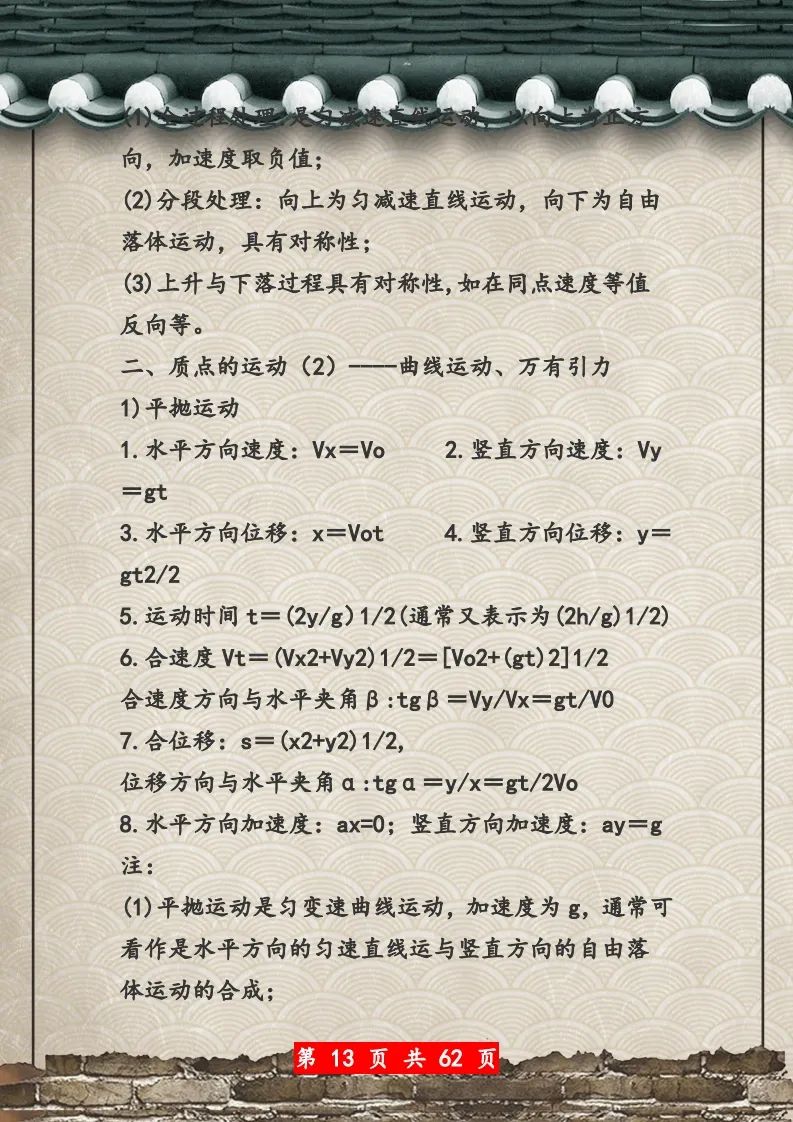 (1)全过程处理:是匀减速直线运动，以向上为正方
向，加速度取负值；
(2)分段处理：向上为匀减速直线运动，向下为自由
落体运动，具有对称性；
(3)上升与下落过程具有对称性,如在同点速度等值
反向等。
二、质点的运动（2）----曲线运动、万有引力
1)平抛运动
1.水平方向速度：Vx＝Vo 2.竖直方向速度：Vy
＝gt
3.水平方向位移：x＝Vot 4.竖直方向位移：y＝
gt2/2
5.运动时间t＝(2y/g)1/2(通常又表示为(2h/g)1/2)
6.合速度Vt＝(Vx2+Vy2)1/2＝[Vo2+(gt)2]1/2
合速度方向与水平夹角β:tgβ＝Vy/Vx＝gt/V0
7.合位移：s＝(x2+y2)1/2,
位移方向与水平夹角α:tgα＝y/x＝gt/2Vo
8.水平方向加速度：ax=0；竖直方向加速度：ay＝g
注：
(1)平抛运动是匀变速曲线运动，加速度为g，通常可
看作是水平方向的匀速直线运与竖直方向的自由落
体运动的合成；
第 13 页 共 62 页